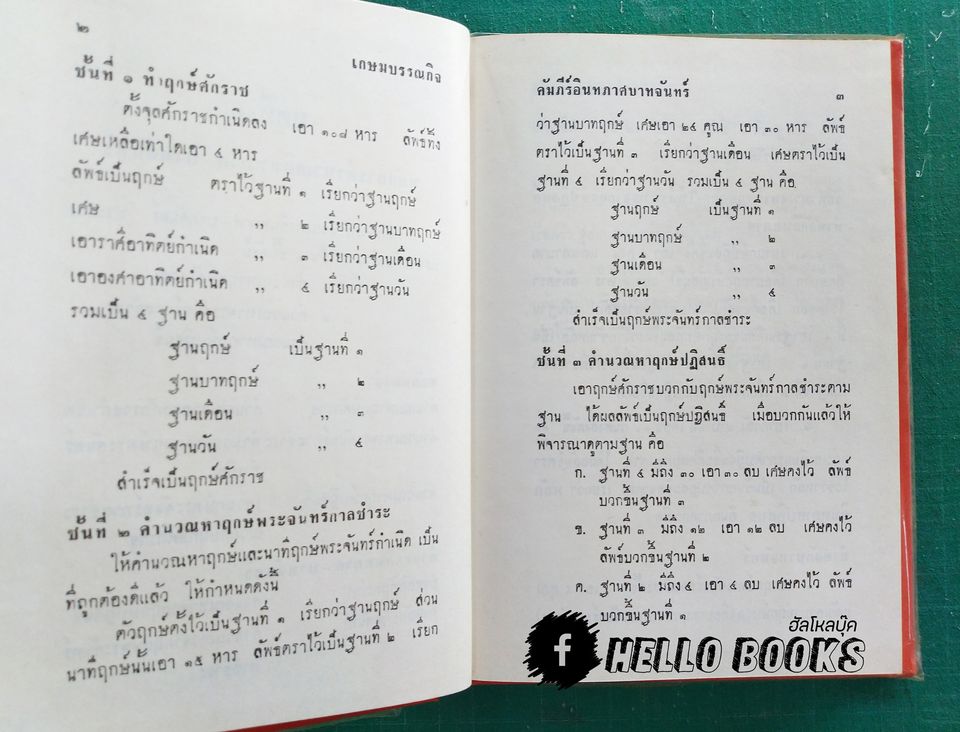 ๒
เกษมบรรณกิจ
ชั้นที่ ๑ ทำฤกษ์ศักราช
ตั้งจุลศักราชกำเนิดลง เอา ๑๐๘ หาร ลัพธ์ทิ้ง
เศษเหลือเท่าใดเอา ๔ หาร
ลัพธ์เป็นฤกษ์ ตราไว้ฐานที่ ๑ เรียกว่าฐานฤกษ์
เศษ ,, ๒ เรียกว่าฐานบาทฤกษ์
เอาราศีอาทิตย์กำเนิด ,, ๓ เรียกว่าฐานเดือน
เอาองศาอาทิตย์กำเนิด ,, ๔ เรียกว่าฐานวัน
รวมเป็น ๔ ฐาน คือ
ฐานฤกษ์ เป็นฐานที่ ๑
ฐานบาทฤกษ์ ,, ๒
ฐานเดือน ,, ๓
ฐานวัน ,, ๔
สำเร็จเป็นฤกษ์ศักราช
ชั้นที่ ๒ คำนวณหาฤกษ์พระจันทร์กาลชำระ
ให้คำนวณหาฤกษ์และนาทีฤกษ์พระจันทร์กำเนิด เป็น
ที่ถูกต้องดีแล้ว ให้กำหนดดังนี้
ตัวฤกษ์ตั้งไว้เป็นฐานที่ ๑ เรียกว่าฐานฤกษ์ ส่วน
นาทีฤกษ์นั้นเอา ๑๕ หาร ลัพธ์ตราไว้เป็นฐานที่ ๒ เรียก
คัมภีร์อินทภาสบาทจันทร์ ๓
ว่าฐานบาทฤกษ์ เศษเอา ๒๔ คูณ เอา ๓๐ หาร ลัพธ์
ตราไว้เป็นฐานที่ ๓ เรียกว่าฐานเดือน เศษตราไว้เป็น
ฐานที่ ๔ เรียกว่าฐานวัน รวมเป็น ๔ ฐาน คือ
ฐานฤกษ์ เป็นฐานที่ ๑
ฐานบาทฤกษ์ ,, ๒
ฐานเดือน ,, ๓
ฐานวัน ,, ๔
สำเร็จเป็นฤกษ์พระจันทร์กาลชำระ
ชั้นที่ ๓ คำนวณหาฤกษ์ปฏิสนธิ์
เอาฤกษ์ศักราชบวกกับฤกษ์พระจันทร์กาลชำระตาม
ฐาน ได้ผลลัพธ์เป็นฤกษ์ปฏิสนธิ์ เมื่อบวกกันแล้วให้
พิจารณาดูตามฐาน คือ
ก. ฐานที่ ๔ มีถึง ๓๐ เอา ๓๐ ลบ เศษคงไว้ ลัพธ์
บวกขึ้นฐานที่ ๓
ข. ฐานที่ ๓ มีถึง ๑๒ เอา ๑๒ ลบ เศษคงไว้
ลัพธ์บวกขึ้นฐานที่ ๒
ค. ฐานที่ ๒ มีถึง ๔ เอา ๔ ลบ เศษคงไว้ ลัพธ์
บวกขึ้นฐานที่ ๑
ฮัลโหลบุ๊ค
f HELLO BOOKS